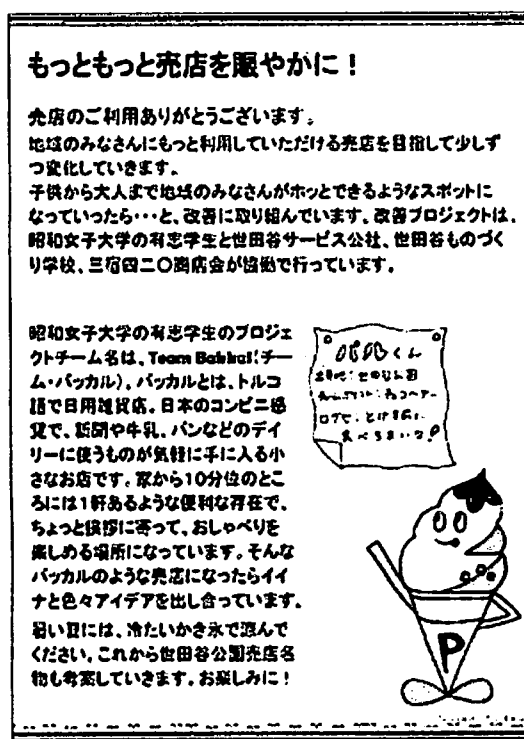 もっともっと売店を賑やかに！
売店のご利用ありがとうございます。
地域のみなさんにもっと利用していただける売店を目指して少しず
つ変化していきます。
子供から大人まで地域のみなさんがホッとできるようなスポットに
なっていったら・・・と、改善に取り組んでいます。改善プロジェクトは、
昭和女子大学の有志学生と世田谷サービス公社、世田谷ものづく
り学校、三宿四二〇商店会が協働で行っています。
昭和女子大学の有志学生のプロジェ
クトチーム名は、Team Bakkal（チー
ム・バッカル）。バッカルとは、トルコ
語で日用雑貨店。日本のコンビニ感
覚で、新聞や牛乳、パンなどのデイ
リーに使うものが気軽に手に入る小
さなお店です。家から10分位のとこ
ろには1軒あるような便利な存在で、
ちょっと挨拶に寄って、おしゃべりを
楽しめる場所になっています。そんな
バッカルのような売店になったらイイ
ナと色々アイデアを出し合っています。
暑い夏には、冷たいかき氷で涼んで
ください。これから世田谷公園売店名
物も考案していきます。お楽しみに！
くん
世田谷公園
とける前に
食べちゃいな！
P